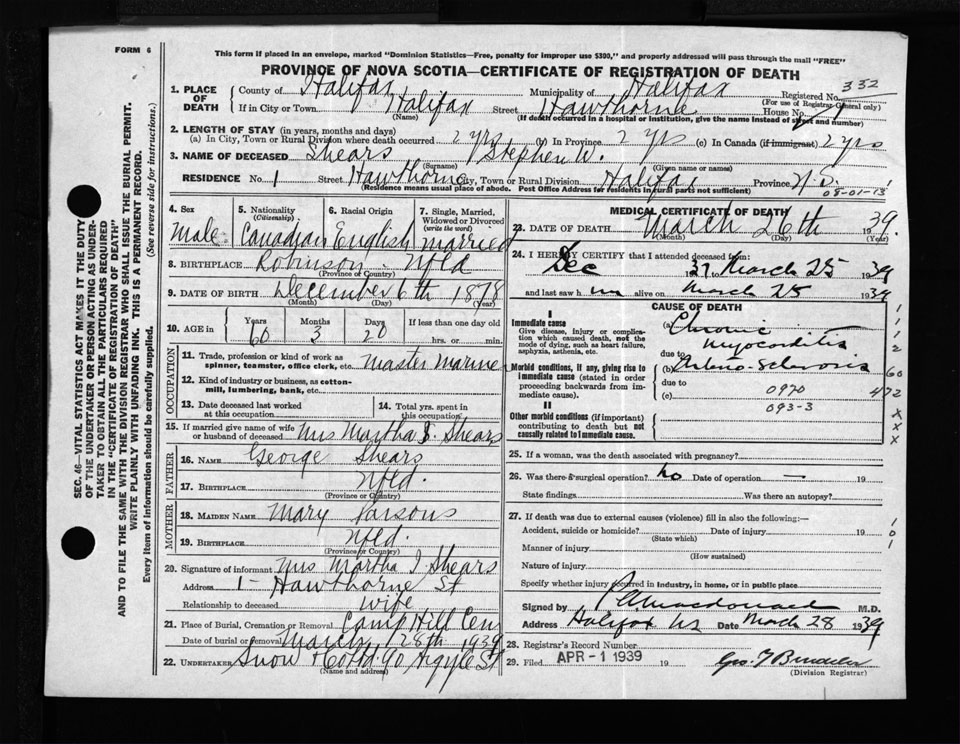 FORM 6
This form if placed in an envelope, marked "Dominion Statistics—Free, penalty for improper use $300," and properly addressed will pass through the mail "FREE"
PROVINCE OF NOVA SCOTIA—CERTIFICATE OF REGISTRATION OF DEATH
SEC. 46—VITAL STATISTICS ACT MAKES IT THE DUTY
OF THE UNDERTAKER OR PERSON ACTING AS UNDER-
TAKER TO OBTAIN ALL THE PARTICULARS REQUIRED
IN THE "CERTIFICATE OF REGISTRATION OF DEATH"
AND TO FILE THE SAME WITH THE DIVISION REGISTRAR WHO SHALL ISSUE THE BURIAL PERMIT.
WRITE PLAINLY WITH UNFADING INK. THIS IS A PERMANENT RECORD.
Every item of information should be carefully supplied. (See reverse side for instructions.)
1. PLACE OF DEATH
County of Halifax Municipality of Halifax Registered No. 332
(For use of Registrar General only)
If in City or Town Halifax Street Hawthorne House No. 1
(Name) (If death occurred in a hospital or institution, give the name instead of street and number)
2. LENGTH OF STAY (in years, months and days)
(a) In City, Town or Rural Division where death occurred 2 yrs (b) in Province 2 yrs (c) In Canada (if immigrant) 2 yrs
3. NAME OF DECEASED Shears Stephen W.
(Surname) (Given name or names)
RESIDENCE No. 1 Street Hawthorne City, Town or Rural Division Halifax Province N.S.
(Residence means usual place of abode. Post Office Address for residents in rural parts not sufficient) 08-01-13
4. Sex Male
5. Nationality (Citizenship) Canadian
6. Racial Origin English
7. Single, Married, Widowed or Divorced (write the word) married
8. BIRTHPLACE Robinson. Nfld
(Province or Country)
9. DATE OF BIRTH December 6th 1878
(Month) (Day) (Year)
10. AGE in Years 60 Months 3 Days 20 If less than one day old hrs. or min.
OCCUPATION
11. Trade, profession or kind of work as spinner, teamster, office clerk, etc. Master Marine
12. Kind of industry or business, as cotton-mill, lumbering, bank, etc.
13. Date deceased last worked at this occupation
14. Total yrs. spent in this occupation
15. If married give name of wife or husband of deceased Mrs Martha J. Shears
FATHER
16. NAME George Shears
17. BIRTHPLACE Nfld.
(Province or Country)
MOTHER
18. MAIDEN NAME Mary Parsons
19. BIRTHPLACE Nfld.
(Province or Country)
20. Signature of informant Mrs Martha J Shears
Address 1 - Hawthorne St
Relationship to deceased wife
21. Place of Burial, Cremation or Removal Camp Hill Cem
Date of burial or removal March 28th 1939
22. UNDERTAKER Snow & Co Ltd 90 Argyle St
(Name and address)
MEDICAL CERTIFICATE OF DEATH
23. DATE OF DEATH March 26th 1939.
(Month) (Day) (Year)
24. I HEREBY CERTIFY that I attended deceased from:
Dec 1937 March 25 1939
and last saw him alive on March 25 1939
CAUSE OF DEATH
I
Immediate cause
Give disease, injury or complication which caused death, not the mode of dying, such as heart failure, asphyxia, asthenia, etc.
(a) Chronic myocarditis
due to
Morbid conditions, if any, giving rise to immediate cause (stated in order proceeding backwards from immediate cause).
(b) Arterio-Sclerosis
due to
(c) 0970
093-3
II
Other morbid conditions (if important) contributing to death but not causally related to immediate cause.
1
1
1
2
60
472
x
x
x
25. If a woman, was the death associated with pregnancy?
26. Was there a surgical operation? no Date of operation — 19
State findings Was there an autopsy?
27. If death was due to external causes (violence) fill in also the following:—
Accident, suicide or homicide? Date of injury 19
(State which)
Manner of injury
(How sustained)
Nature of injury
Specify whether injury occurred in industry, in home, or in public place
1
0
1
Signed by Macdonald M.D.
Address Halifax NS Date March 28 1939
28. Registrar's Record Number
29. Filed APR - 1 1939 19
(Division Registrar)